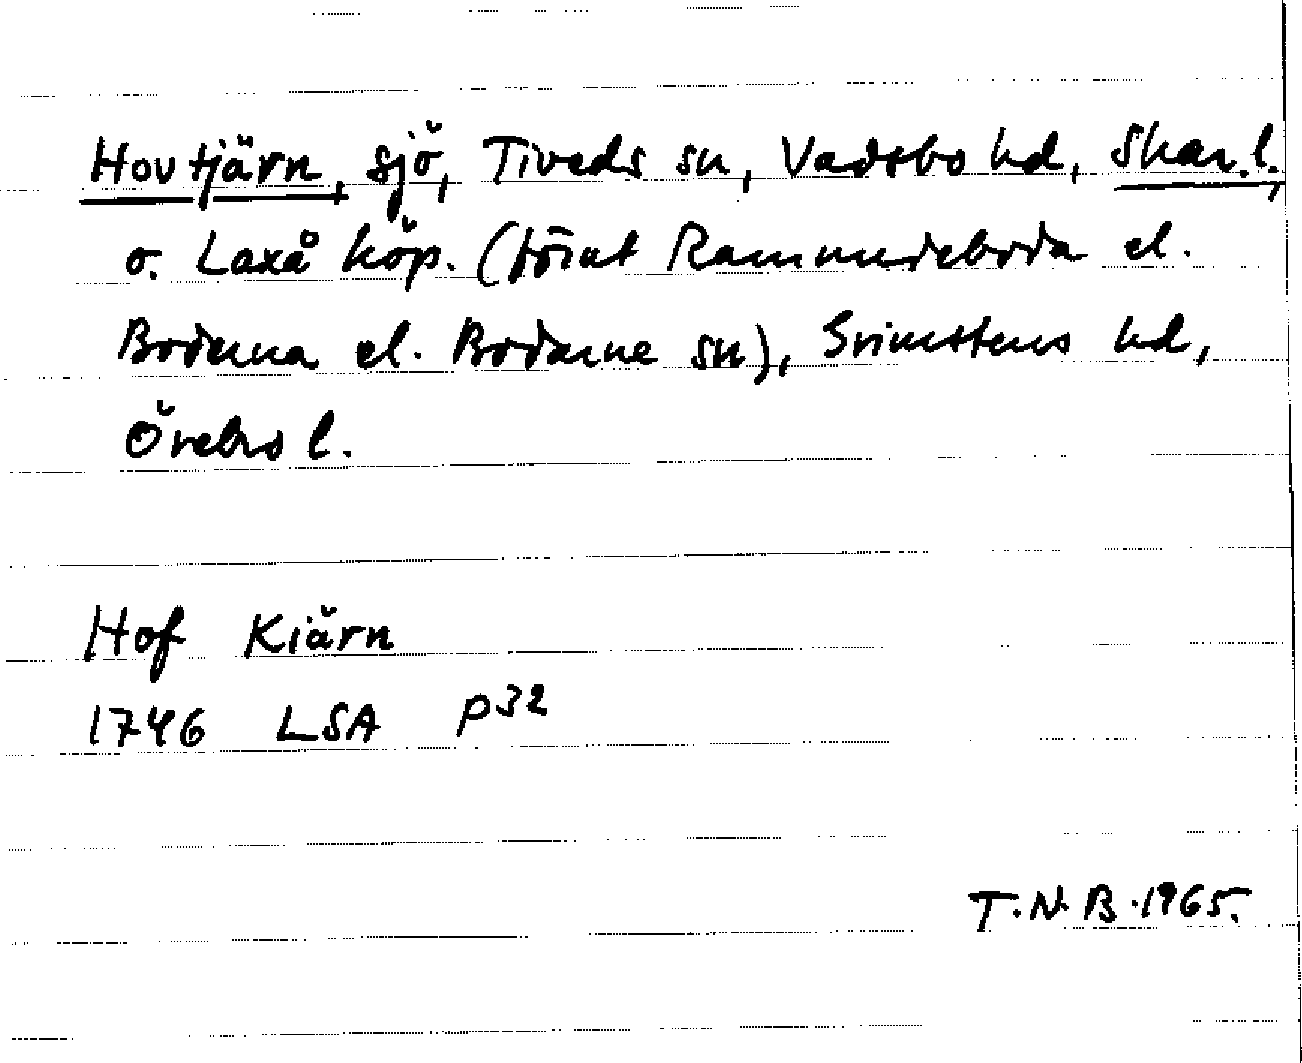 Hovtjärn, sjö, Tiveds sn, Vadsbo hd, Skar.l.,
o. Laxå köp. (förut Ramundeboda el.
Boderna el. Bodarne sn), Grimstens hd,
Örebro l.
Hof Kiärn
1746 LSA P32
T.N.B.1965.